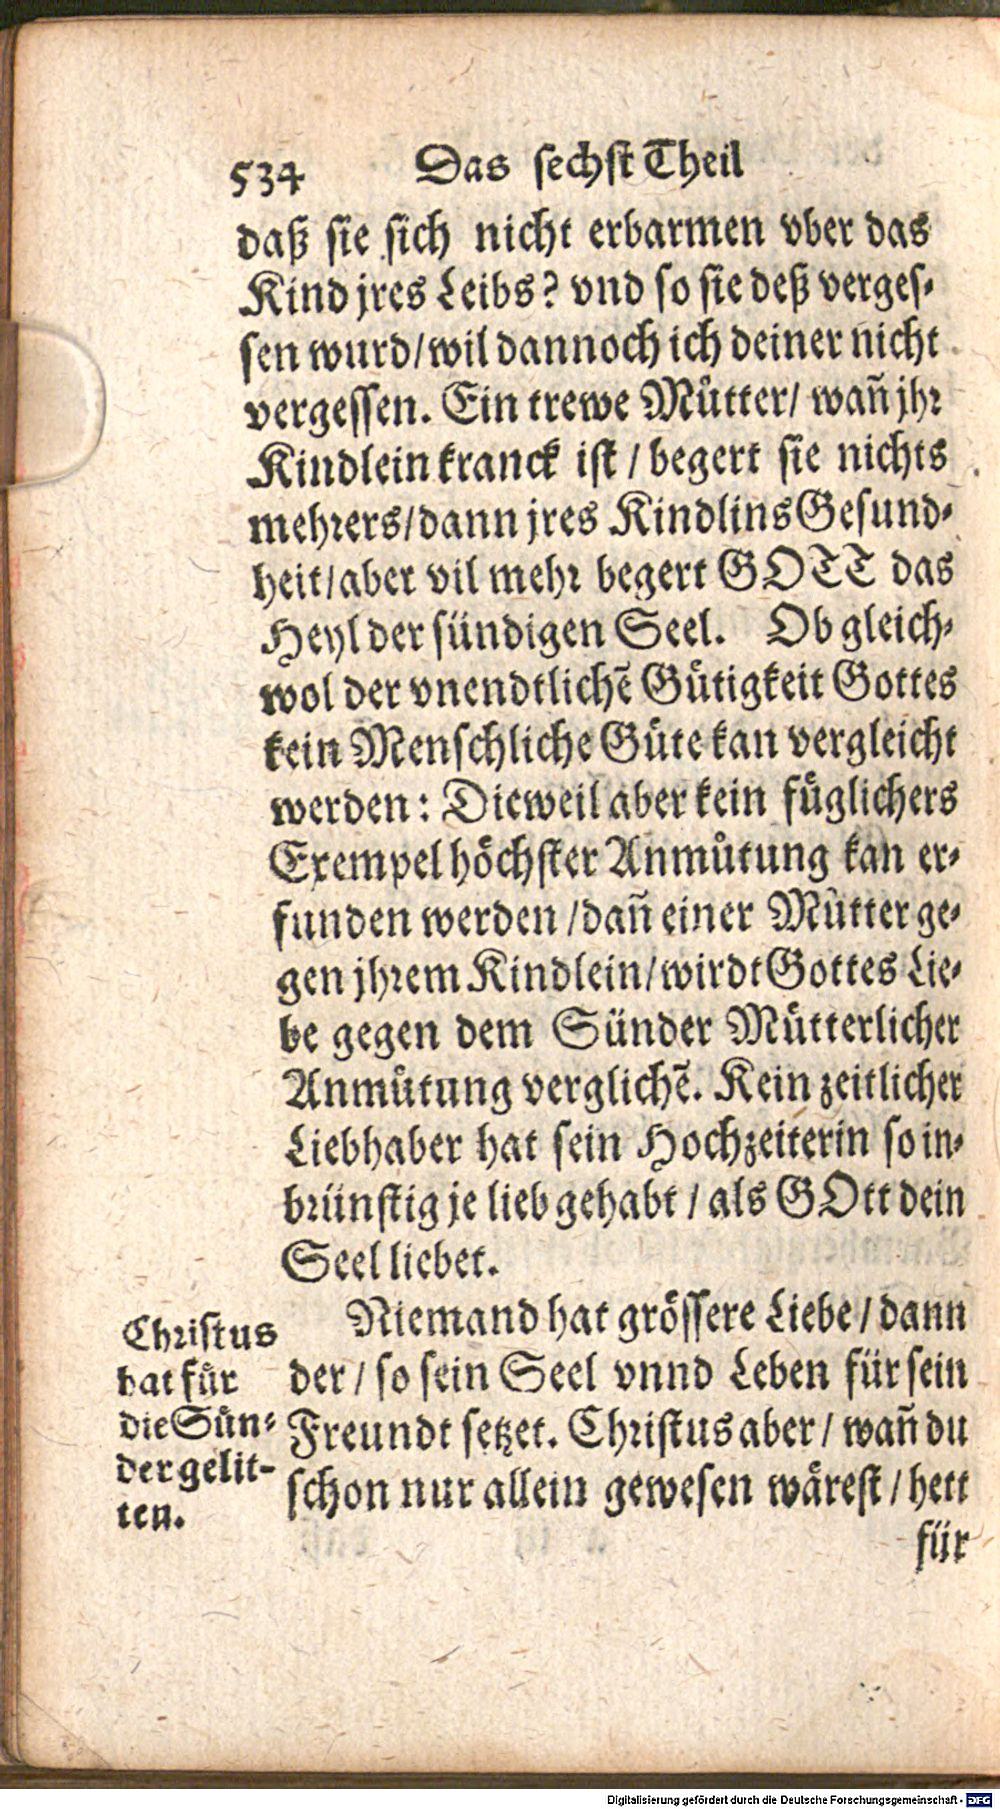 534 Das sechst Theil
daß sie sich nicht erbarmen vber das
Kind jres Leibs? vnd so sie deß verges-
sen wurd/wil dannoch ich deiner nicht
vergessen. Ein trewe Můtter/ wañ jhr
Kindlein kranck ist / begert sie nichts
mehrers/dann jres Kindlins Gesund-
heit/aber vil mehr begert GOTT das
Heyl der sündigen Seel. Ob gleich-
wol der vnendtlichẽ Gütigkeit Gottes
kein Menschliche Güte kan vergleicht
werden: Dieweil aber kein füglichers
Exempel höchster Anmůtung kan er-
funden werden /dañ einer Můtter ge-
gen jhrem Kindlein/wirdt Gottes Lie-
be gegen dem Sünder Mütterlicher
Anmůtung verglichẽ. Kein zeitlicher
Liebhaber hat sein Hochzeiterin so in-
brünstig je lieb gehabt / als GOtt dein
Seel liebet.
Niemand hat grössere Liebe / dann
der / so sein Seel vnnd Leben für sein
Freundt setzet. Christus aber / wañ du
schon nur allein gewesen wärest / hett
für
Christus
hat für
die Sün-
der gelit-
ten.
Digitalisierung gefördert durch die Deutsche Forschungsgemeinschaft - DFG